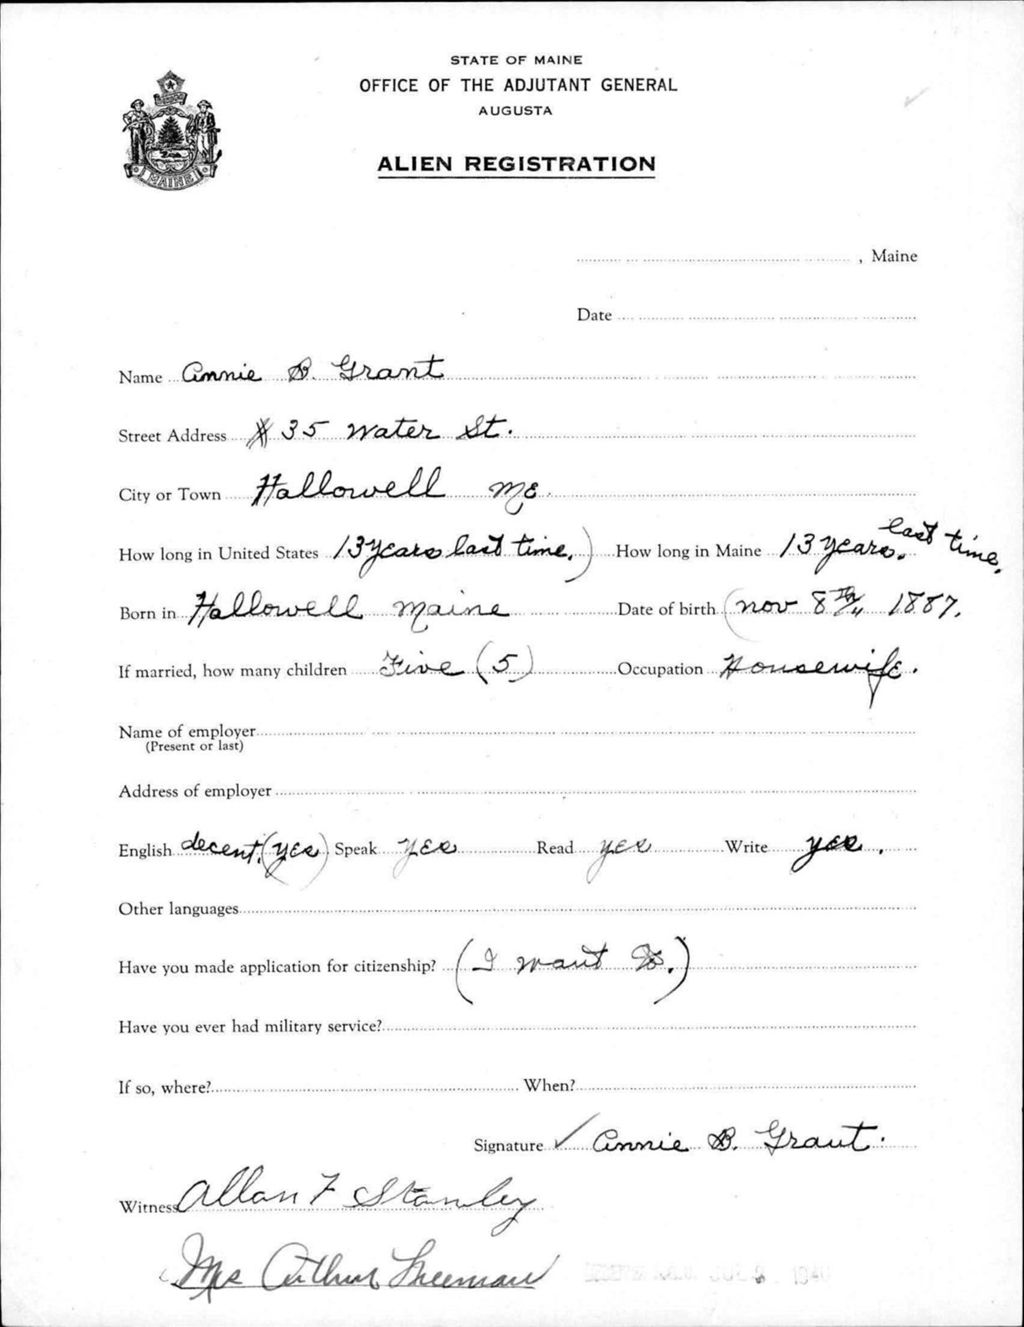 STATE OF MAINE
OFFICE OF THE ADJUTANT GENERAL
AUGUSTA
ALIEN REGISTRATION
MAINE
, Maine
Date
Name Annie B. Grant
Street Address # 35 Water St.
City or Town Hallowell Me.
How long in United States 13 years last time.) How long in Maine 13 years. last time.
Born in Hallowell Maine Date of birth (nov 8th, 1887.
If married, how many children Five (5) Occupation Housewife.
Name of employer
(Present or last)
Address of employer
English decent. (yes) Speak yes Read yes Write yes.
Other languages
Have you made application for citizenship? (I want to.)
Have you ever had military service?
If so, where? When?
Signature ✓ Annie B. Grant.
Witness Allan F Stanley
Mrs Arthur Freeman
1940